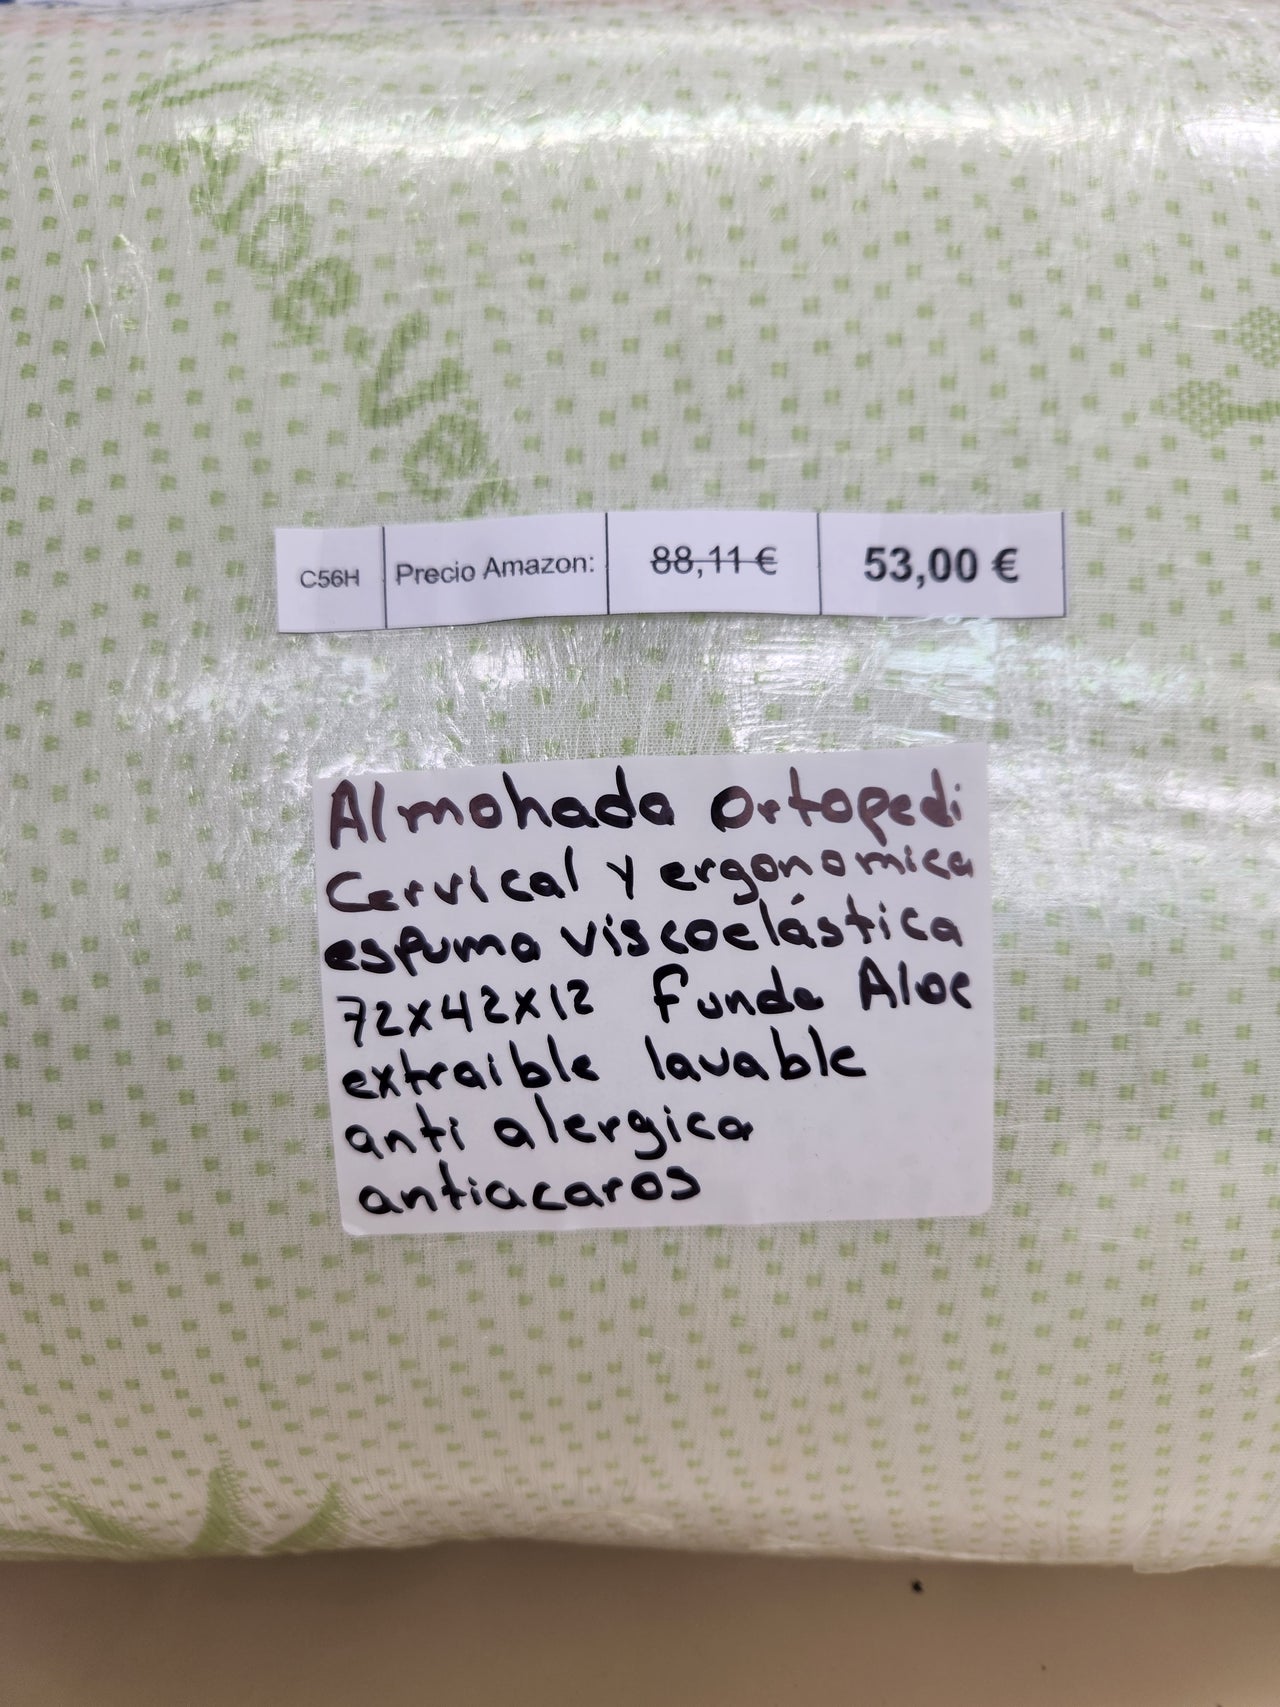 Aloe Vera
C56H Precio Amazon: 88,11 € 53,00 €
Almohada Ortopedi
Cervical y ergonomica
espuma viscoelástica
72x42x12 Funda Aloe
extraible lavable
anti alergica
antiacaros